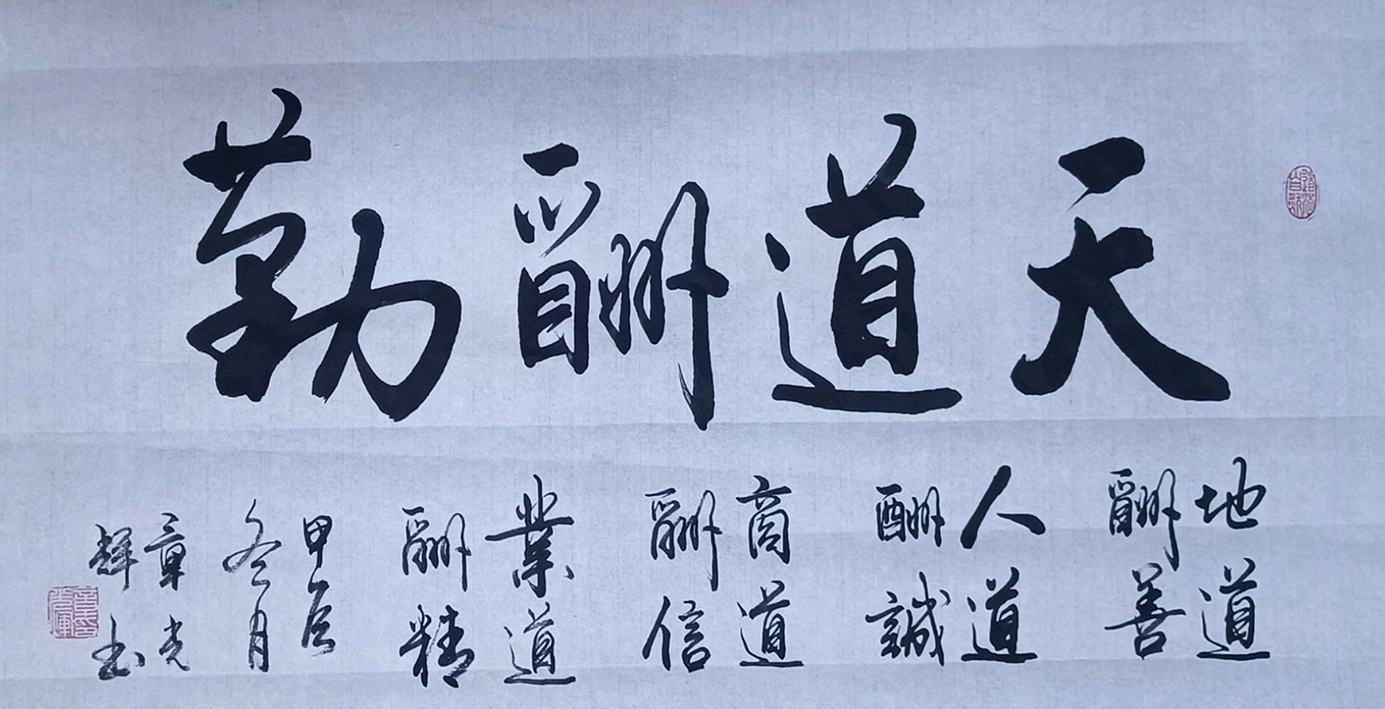 天道酬勤
地道
酬善
人道
酬誠
商道
酬信
業道
酬精
甲辰
冬月
章光
輝書